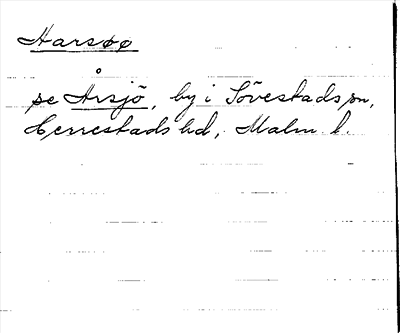 Harsøø
se Årsjö, by i Sövestads sn,
Herrestads hd, Malm. l.